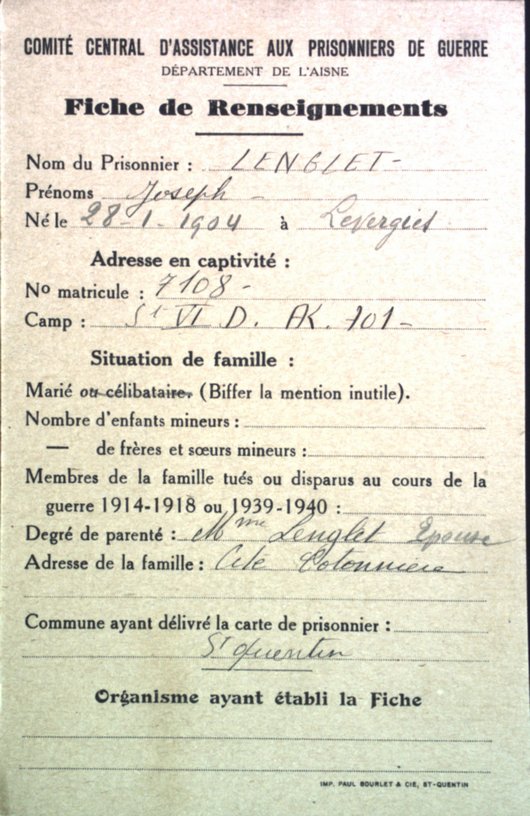 COMITÉ CENTRAL D'ASSISTANCE AUX PRISONNIERS DE GUERRE
DÉPARTEMENT DE L'AISNE
Fiche de Renseignements
Nom du Prisonnier : LENGLET
Prénoms Joseph
Né le 28-1-1904 à Levergies
Adresse en captivité :
No matricule : 7108
Camp : St VI D. AK. 701
Situation de famille :
Marié ou célibataire. (Biffer la mention inutile).
Nombre d'enfants mineurs :
— de frères et sœurs mineurs :
Membres de la famille tués ou disparus au cours de la
guerre 1914-1918 ou 1939-1940 :
Degré de parenté : Mme Lenglet Epouse
Adresse de la famille : Cité Cotonnière
Commune ayant délivré la carte de prisonnier :
St Quentin
Organisme ayant établi la Fiche
IMP. PAUL BOURLET & CIE, ST-QUENTIN